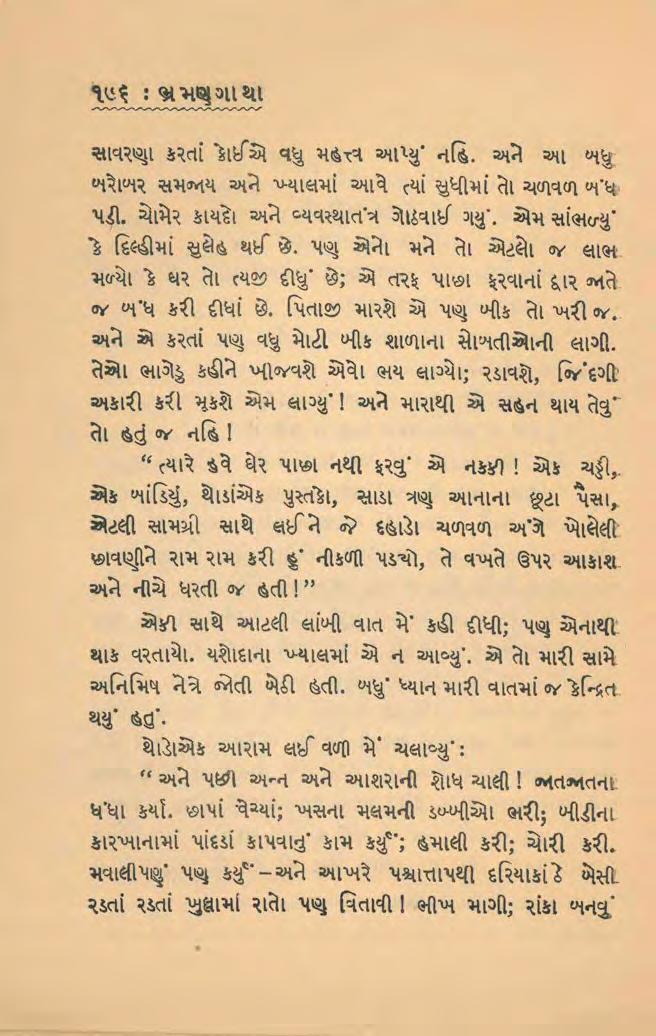 ૧૯૬ : ભ્રમણગાથા
સાવરણા કરતાં કોઈએ વધુ મહત્ત્વ આપ્યું નહિ. અને આ બધુ
બરોબર સમજાય અને ખ્યાલમાં આવે ત્યાં સુધીમાં તો ચળવળ બંધ
પડી. ચોમેર કાયદો અને વ્યવસ્થાતંત્ર ગોઠવાઈ ગયું. એમ સાંભળ્યું
કે દિલ્હીમાં સુલેહ થઈ છે. પણ એનો મને તો એટલો જ લાભ
મળ્યો કે ઘર તો ત્યજી દીધું છે; એ તરફ પાછા ફરવાનાં દ્વાર જાતે
જ બંધ કરી દીધાં છે. પિતાજી મારશે એ પણ બીક તો ખરી જ.
અને એ કરતાં પણ વધુ મોટી બીક શાળાના સોબતીઓની લાગી.
તેઓ ભાગેડુ કહીને ખીજવશે એવો ભય લાગ્યો; રડાવશે, જિંદગી
અકારી કરી મૂકશે એમ લાગ્યું! અને મારાથી એ સહન થાય તેવું
તો હતું જ નહિ!
“ત્યારે હવે ઘેર પાછા નથી ફરવું એ નક્કી! એક ચડ્ડી,
એક બાંડિયું, થોડાંએક પુસ્તકો, સાડા ત્રણ આનાના છૂટા પૈસા,
એટલી સામગ્રી સાથે લઈને જે દહાડો ચળવળ અંગે ખોલેલી
છાવણીને રામ રામ કરી હું નીકળી પડ્યો, તે વખતે ઉપર આકાશ
અને નીચે ધરતી જ હતી!”
એકી સાથે આટલી લાંબી વાત મેં કહી દીધી; પણ એનાથી
થાક વરતાયો. યશોદાના ખ્યાલમાં એ ન આવ્યું. એ તો મારી સામે
અનિમિષ નેત્રે જોતી બેઠી હતી. બધું ધ્યાન મારી વાતમાં જ કેન્દ્રિત
થયું હતું.
થોડોએક આરામ લઈ વળી મેં ચલાવ્યું:
“અને પછી અન્ન અને આશરાની શોધ ચાલી! જાતજાતના
ધંધા કર્યા. છાપાં વેચ્યાં; ખસના મલમની ડબ્બીઓ ભરી; બીડીના
કારખાનામાં પાંદડાં કાપવાનું કામ કર્યું; હમાલી કરી; ચોરી કરી.
મવાલીપણું પણ કર્યું –અને આખરે પશ્ચાત્તાપથી દરિયાકાંઠે બેસી
રડતાં રડતાં ખુલ્લામાં રાતો પણ વિતાવી! ભીખ માગી; રાંકા બનવું